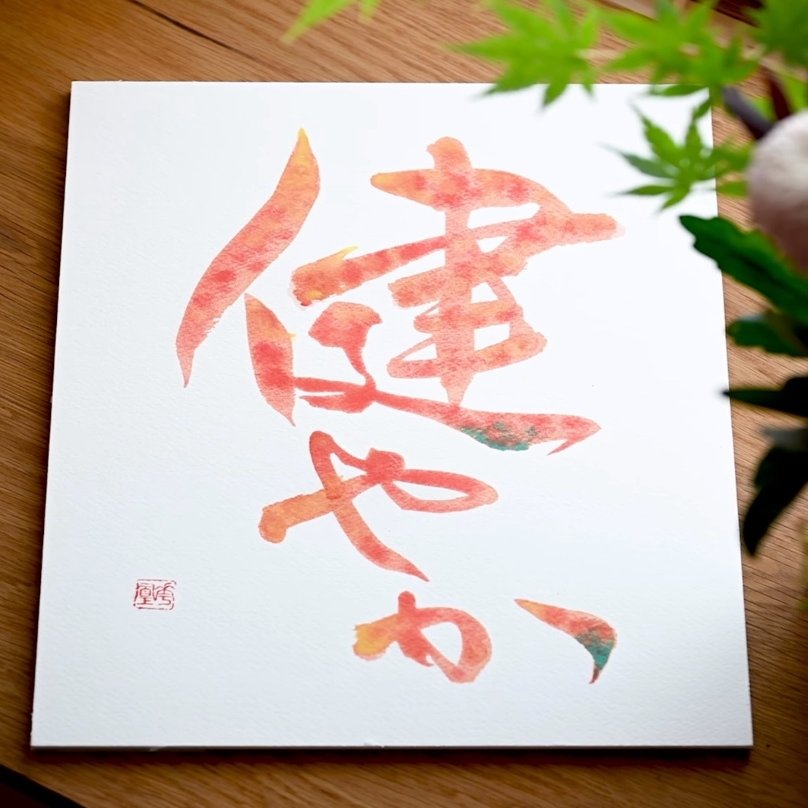 健やか